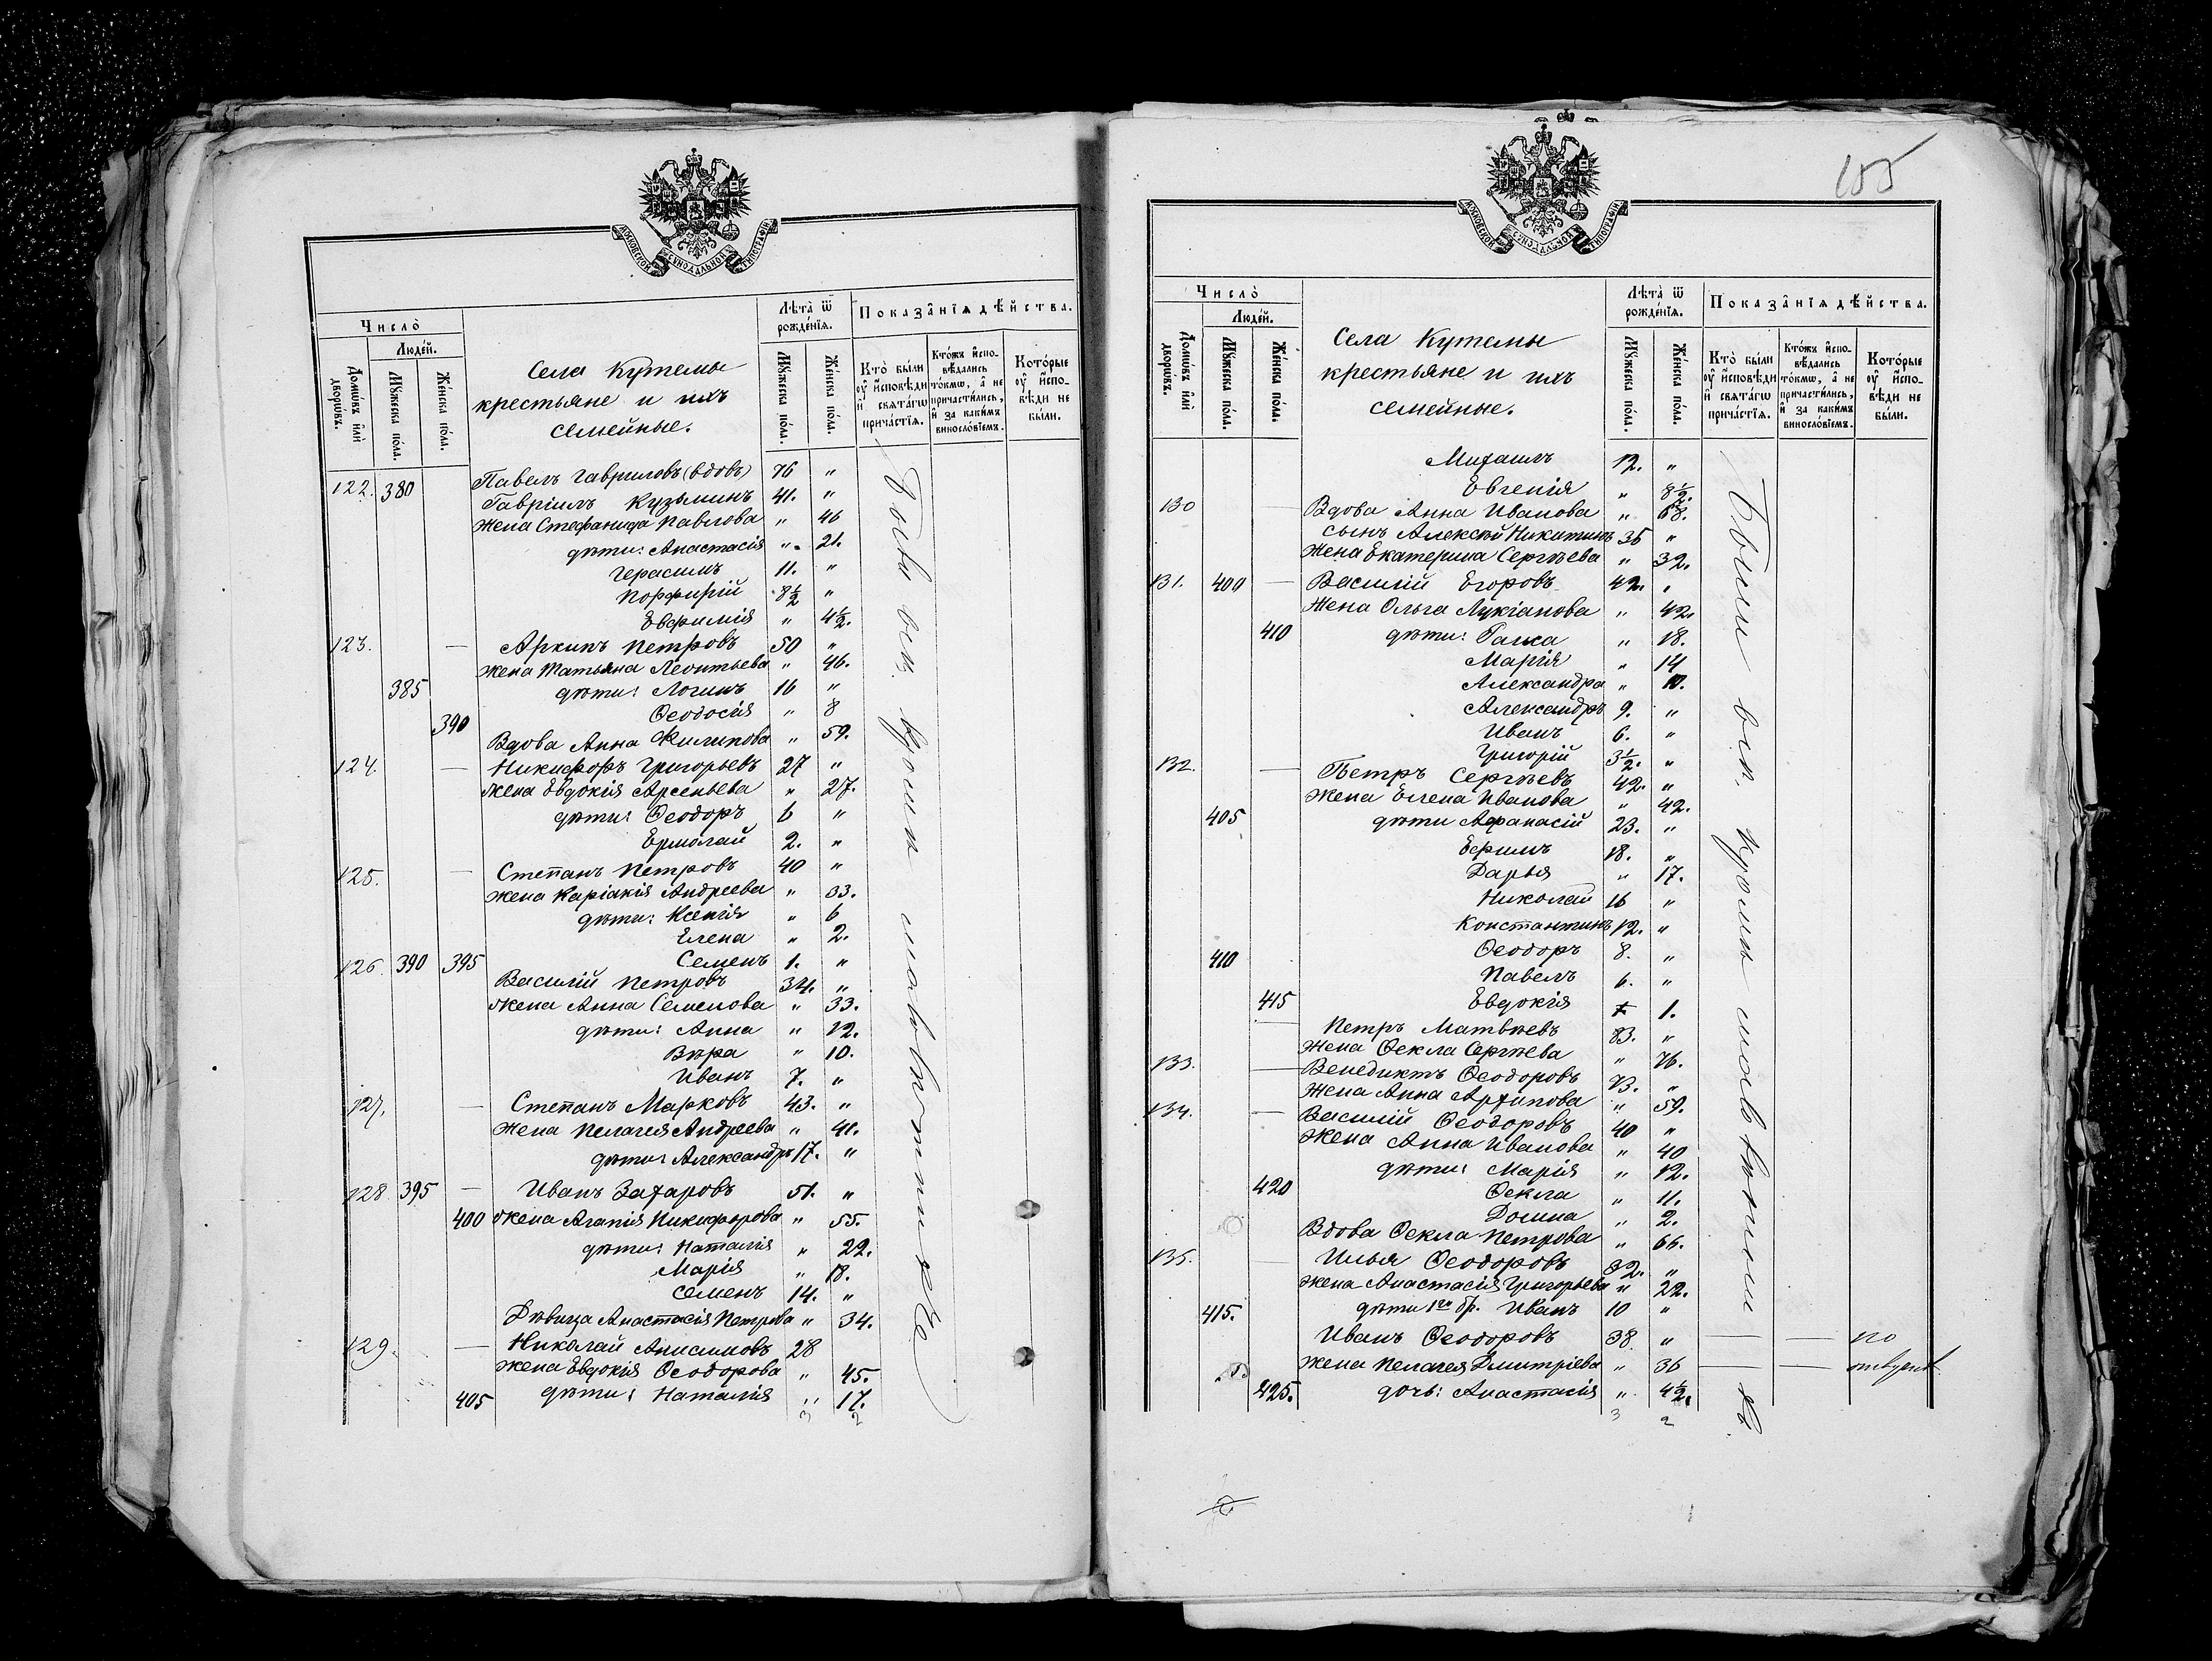 МОСКОВСКОЙ СѴНОДАЛЬНОЙ ТИПОГРАФІИ
Число̀
Люде́й.
Домѡ́въ и҆лѝ дворѡ́въ.
Мꙋ́жеска по́ла.
Же́нска по́ла.
Села Кутемы
крестьяне и ихъ
семейные.
Лѣта̀ ѿ рожде́нїѧ.
Мꙋ́жеска по́ла.
Же́нска по́ла.
Показа̑нїѧ дѣ́йства.
Кто̀ бы́ли ᲂу҆ и҆сповѣ́ди и҆ свѧта́гѡ прича́стїѧ.
Кто́жъ и҆спо- вѣ́дались то́кмѡ, а҆ не причасти́лись, и҆ за каки́мъ винослові́емъ.
Кото́рые ᲂу҆ и҆спо- вѣ́ди не бы́ли.
122. 380 Павелъ Гавриловъ (вдовъ) 76 "
Гавріилъ Кузьминъ 41. "
Жена Стефанида Павлова " 46
дѣти: Анастасія " 21.
Герасимъ 11. "
Порфирій 8½ "
Евфимія " 4½.
123. — Архипъ Петровъ 50 "
Жена Татьяна Леонтьева " 46.
385 дѣти: Логинъ 16 "
Ѳеодосія " 8
390 Вдова Анна Филипова " 59.
124. — Никифоръ Григорьевъ 27 "
Жена Евдокія Арсеньева " 27.
дѣти: Ѳеодоръ 6 "
Ермолай 2. "
125. — Степанъ Петровъ 40 "
Жена Каріакія Андреева " 33.
дѣти: Ксенія " 6
Елена " 2.
390 395 Семенъ 1. "
126. Василій Петровъ 34. "
Жена Анна Семенова " 33.
дѣти: Анна " 12.
Вѣра " 10.
Иванъ 7. "
127. — Степанъ Марковъ 43. "
Жена Пелагея Андреева " 41.
дѣти: Александръ 17. "
128 395 — Иванъ Захаровъ 51. "
400 Жена Агапія Никифорова " 55.
дѣти: Наталія " 22.
Марія " 18.
Семенъ 14. "
Дѣвица Анастасія Петрова " 34.
129. — Николай Анисимовъ 28
Жена Евдокія Ѳеодорова " 45.
405 дѣти: Наталія " 17.
3 2
105
МОСКОВСКОЙ СѴНОДАЛЬНОЙ ТИПОГРАФІИ
Число̀
Люде́й.
Домѡ́въ и҆лѝ дворѡ́въ.
Мꙋ́жеска по́ла.
Же́нска по́ла.
Села Кутемы
крестьяне и ихъ
семейные.
Лѣта̀ ѿ рожде́нїѧ.
Мꙋ́жеска по́ла.
Же́нска по́ла.
Показа̑нїѧ дѣ́йства.
Кто̀ бы́ли ᲂу҆ и҆сповѣ́ди и҆ свѧта́гѡ прича́стїѧ.
Кто́жъ и҆спо- вѣ́дались то́кмѡ, а҆ не причасти́лись, и҆ за каки́мъ винослові́емъ.
Кото́рые ᲂу҆ и҆спо- вѣ́ди не бы́ли.
Михаилъ 12. "
Евгенія " 8½.
130 Вдова Анна Иванова " 68.
сынъ Алексѣй Никитинъ 35 "
Жена Екатерина Сергѣева " 32.
131. 400 — Василій Егоровъ 42. "
Жена Ольга Лукіанова " 42.
410 дѣти: " 18.
Марія " 14
Александра " 10.
Александръ 9. "
Иванъ 6. "
Григорій 3½. "
132. — Петръ Сергѣевъ 42. "
Жена Елена Иванова " 42.
405 дѣти Афанасій 23. "
Ефимъ 18. "
Дарья " 17.
Николай 16 "
Константинъ 12. "
Ѳеодоръ 8. "
410 Павелъ 6. "
415 Евдокія 1.
— Петръ Матвѣевъ 83. "
Жена Ѳекла Сергѣева " 76.
133. — Венедиктъ Ѳеодоровъ 73. "
Жена Анна Архипова " 59.
134. — Василій Ѳеодоровъ 40 "
Жена Анна Иванова " 40
дѣти: Марія " 12.
420 Ѳекла " 11.
Домна " 2.
Вдова Ѳекла Петрова " 66.
135. — Илья Ѳеодоровъ 32. "
Жена Анастасія Григорьева " 22.
415. дѣти 1го бр. Иванъ 10 "
Иванъ Ѳеодоровъ 38 " — — по
Жена Пелагея Дмитріева " 36 — — отлучк.
425. дочь: Анастасія " 4½.
3 2